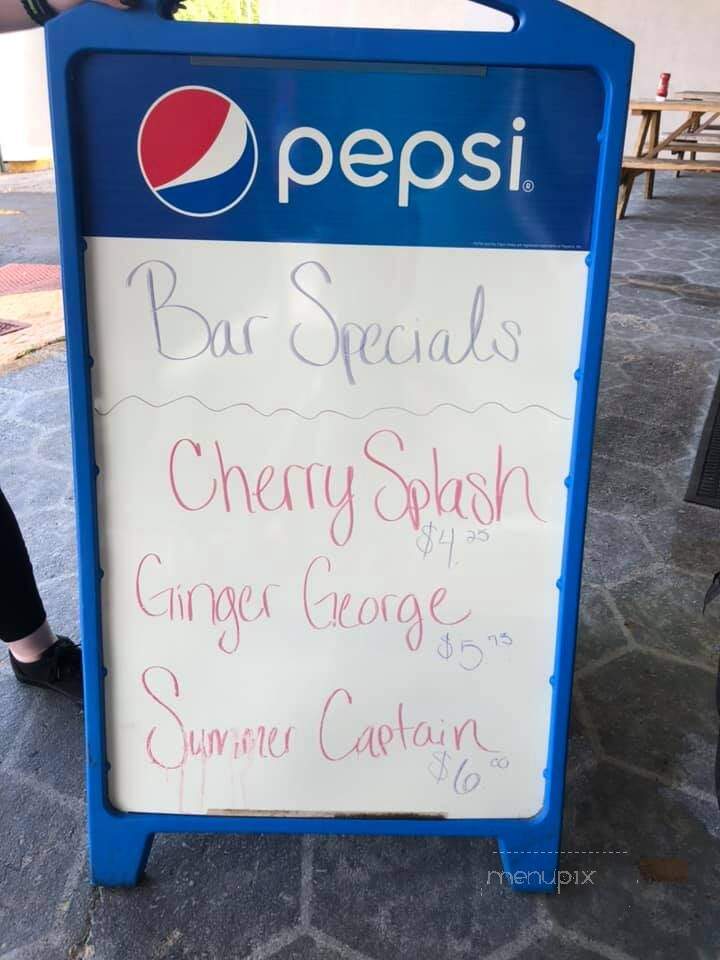 pepsi®
Bar Specials
Cherry Splash
$4.25
Ginger George
$5.75
Summer Captain
$6.00
menupix